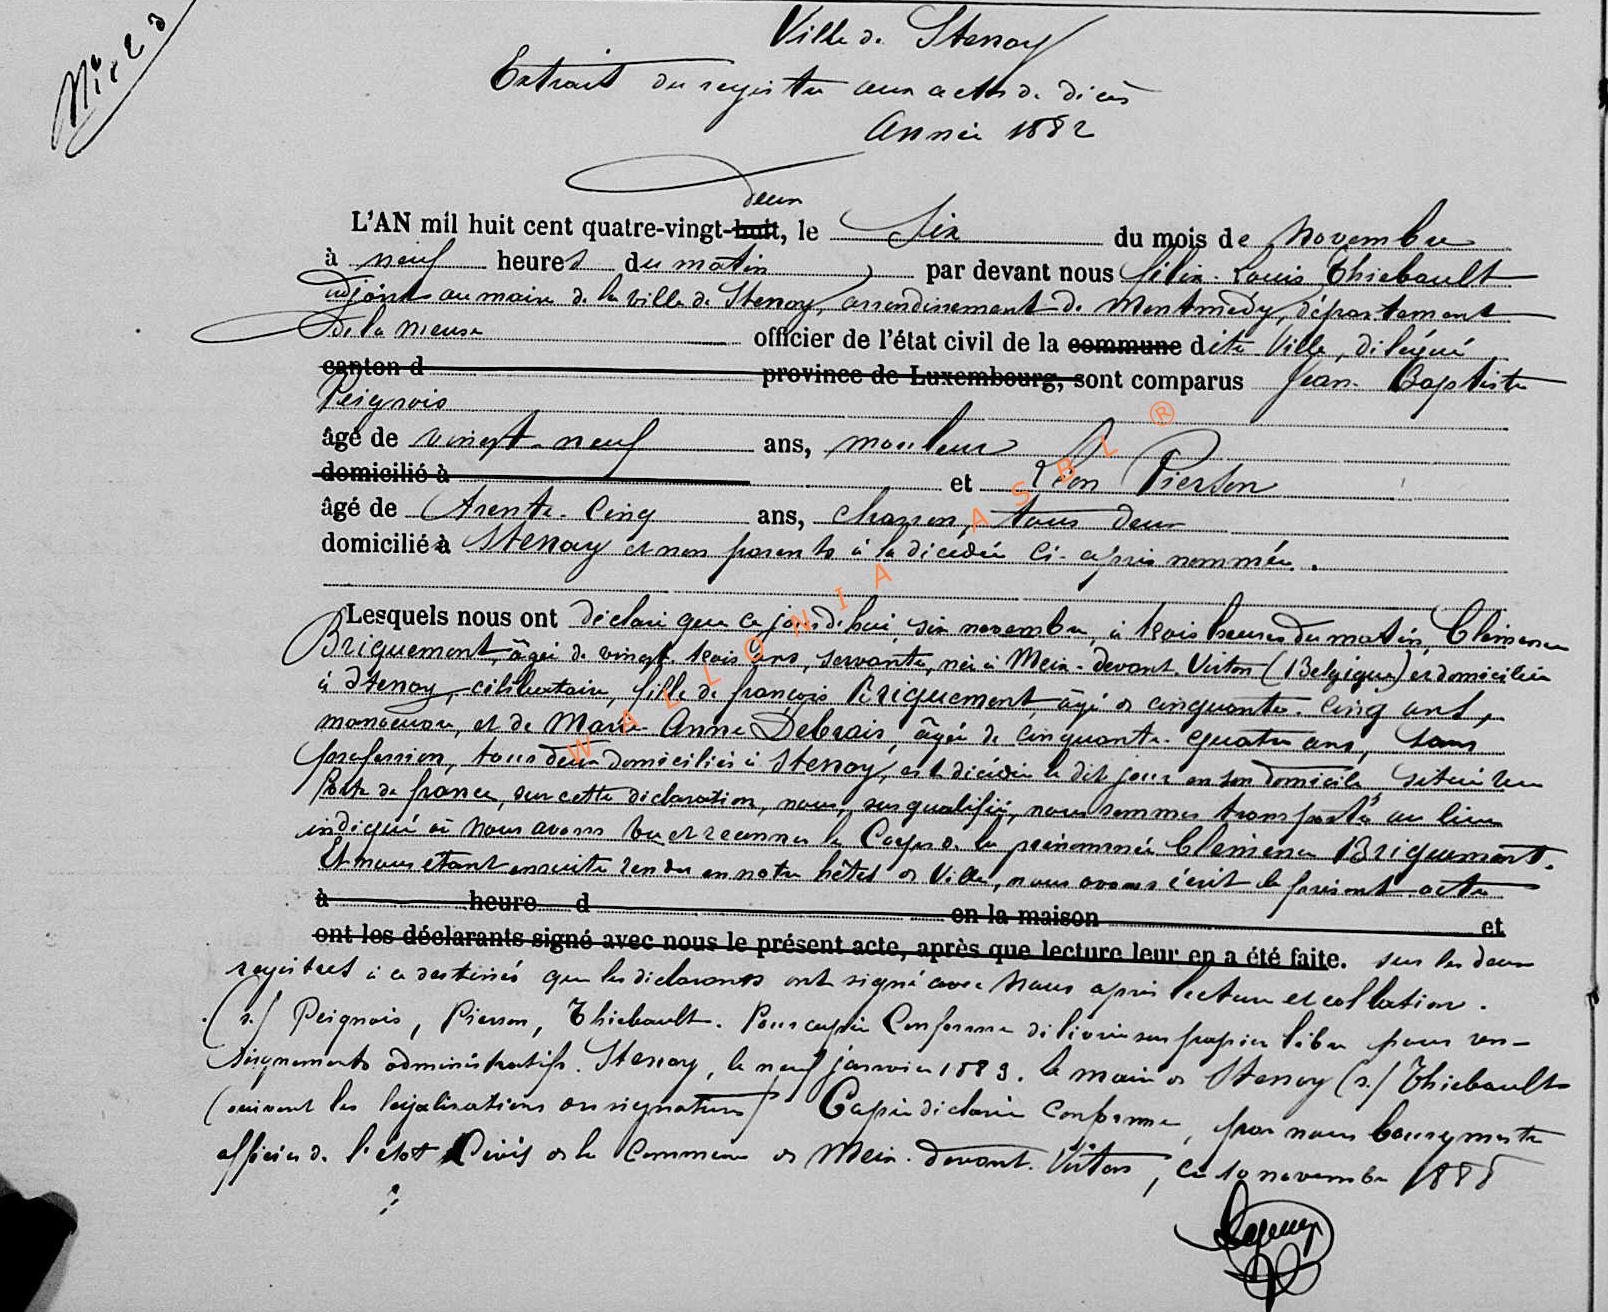 N° 23
Ville de Stenay
Extrait du registre aux actes de décès
Année 1882
deux
L'AN mil huit cent quatre-vingt-huit, le Six du mois de Novembre
à neuf heures du matin par devant nous Félix-Louis Thiebault
adjoint au maire de la ville de Stenay, arrondissement de Montmédy, département
de la Meuse officier de l'état civil de la commune dite Ville, délégué
canton d province de Luxembourg, sont comparus Jean-Baptiste
Peignois
âgé de vingt-neuf ans, mouleur
domicilié à et Léon Pierson
âgé de trente-Cinq ans, charron, tous deux
domicilié à Stenay et non parents à la décédée ci-après nommée.
Lesquels nous ont déclaré que ce jourd'hui, six novembre, à trois heures du matin, Clémence
Briquemont, âgée de vingt-trois ans, servante, née à Meix-devant-Virton (Belgique) et domiciliée
à Stenay, célibataire, fille de françois Briquemont, âgé de cinquante-cinq ans,
manoeuvre, et de Marie Anne Debrais, âgée de cinquante-quatre ans, sans
profession, tous deux domiciliés à Stenay, est décédée le dit jour en son domicile, située rue
Porte de france, sur cette déclaration, nous, sus qualifié, nous sommes transporté au lieu
indiqué où nous avons vu et reconnu le Corps de la prénommée Clémence Briquemont.
Et nous étant ensuite rendu en notre hôtel de Ville, nous avons écrit le présent acte
à heure d en la maison et
ont les déclarants signé avec nous le présent acte, après que lecture leur en a été faite. sur les deux
registres à ce destinés que les déclarants ont signé avec Nous après lecture et collation.
(s./ Peignois, Pierson, Thiebault. Pour copie Conforme délivrée sur papier libre pour ren-
seignements administratifs. Stenay, le neuf janvier 1883. le maire de Stenay (s./ Thiebault
(suivent les légalisations de signatures) Copie déclarée conforme, par nous bourgmestre
officier de l'état Civil de la Commune de Meix-devant-Virton, ce 10 novembre 1888
WALLONIA ASBL ®